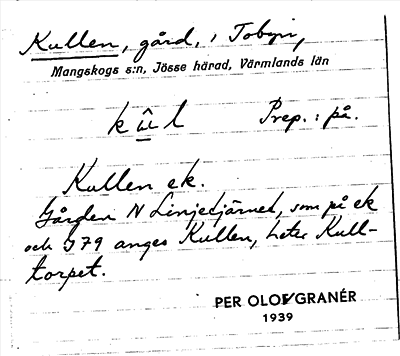 Kullen, gård, i Tobyn,
Mangskogs s:n, Jösse härad, Värmlands län
kûl Prep.: på.
Kullen ek.
Gården N Linjetjärnet, som på ek
och J 79 anges Kullen, heter Kull-
torpet.
PER OLOF GRANÉR
1939